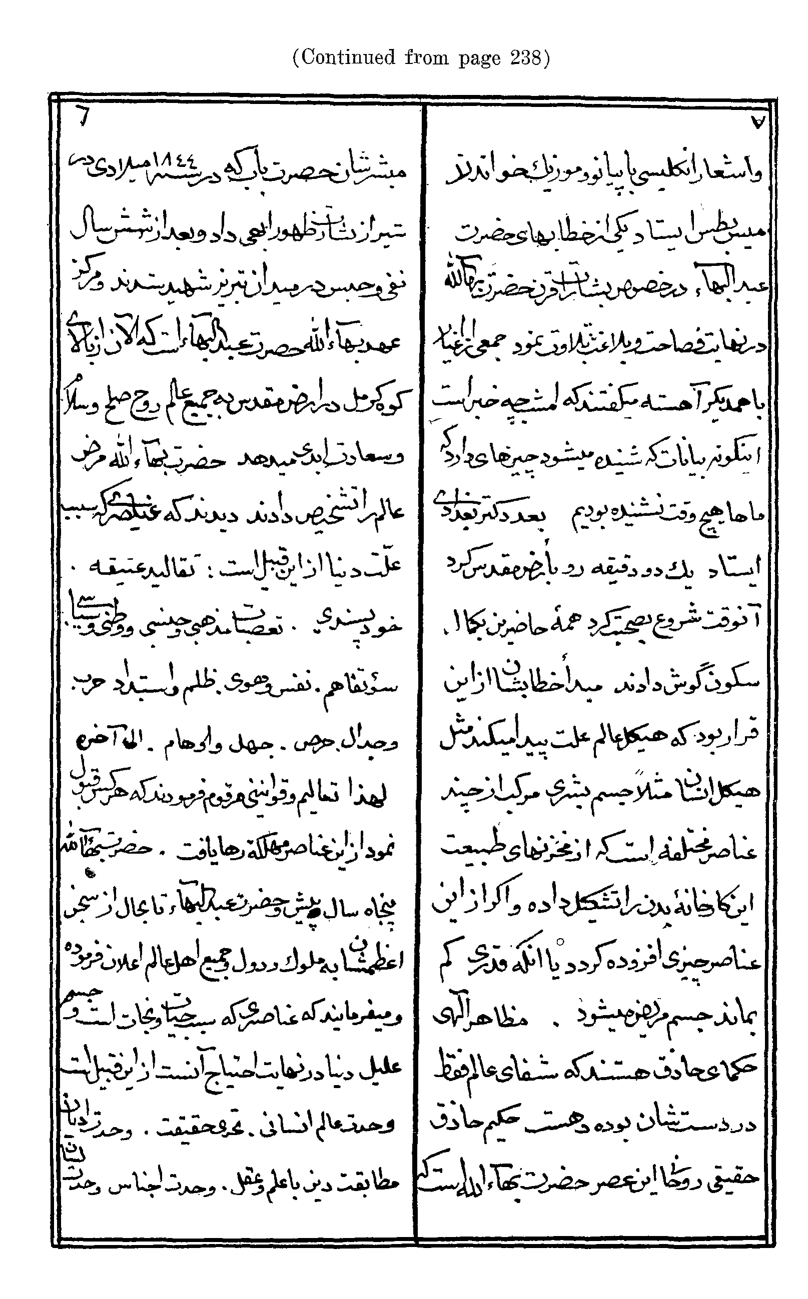 (Continued from page 238)
۷
واشعار انکلیسی با پیانو و موزیك خواندند
میس بطس ایستاد یکی از خطابهای حضرت
عبدالبهاء در خصوص بشارات قرن حضرت بهاءالله
در نهایت فصاحت و بلاغت تلاوت نمود جمعی از اغیار
با همدیکر آهسته میکفتند که امشب چه خبر است
اینکونه بیانات که شنیده میشود چیزهای دارد که
ماها هیچ وقت نشنیده بودیم بعد دکتر بغدادی
ایستاد یك دو دقیقه رو بأرض مقدس کرد
آنوقت شروع بصحبت کرد همهٔ حاضرین بکمال
سکون گوش دادند مبدأ خطابشان از این
قرار بود که هیکل عالم علت پیدا میکند مثل
هیکل انسان مثلاً جسم بشری مرکب از چند
عناصر مختلفه است که از مخزنهای طبیعت
این کارخانهٔ بدن را تشکیل داده و اکر از این
عناصر چیزی افزوده کردد یا آنکه قدری کم
بماند جسم مریض میشود . مظاهر الهی
حکمای حاذق هستند که شفای عالم فقط
در دستشان بوده و هست حکیم حاذق
حقیقی روحانی این عصر حضرت بهاءالله است که
٦
مبشرشان حضرت باب که در سنه ١٨٤٤ میلادی در
شیراز بشارت ظهور ابهی داد و بعد از شش سال
نفی و حبس در میدان تبریز شهید شدند و مرکز
عهد بهاءالله حضرت عبدالبهاء است که الآن از بالای
کوه کرمل در ارض مقدس به جمیع عالم روح صلح و سلام
و سعادت ابدی میدهد حضرت بهاءالله مرض
عالم را تشخیص دادند دیدند که عناصری که سبب
علّت دنیا از این قبیل است : تقالید عتیقه .
خود پسندی . تعصبات مذهبی و جنسی و وطنی و سیاسی .
سؤتفاهم . نفس و هوی . ظلم و استبداد حرب
وجدال . حرص . جهل و اوهام . الی آخره
لهذا تعالیم و قوانینی مرقوم فرمودند که هر کس قبول
نمود از این عناصر مهلکة رها یافت . حضرت بهاءالله
پنجاه سال پیش و حضرت عبدالبهاء تا بحال از سجن
اعظمشان به ملوك و دول و جمیع اهل عالم اعلان فرموده
و میفرمایند که عناصری که سبب حیات و نجات است و جسم
علیل دنیا در نهایت احتیاج آنست از این قبیل است
وحدت عالم انسانی . تحری حقیقت . وحدت ادیان
مطابقت دین با علم و عقل . وحدت اجناس وحدت لسان